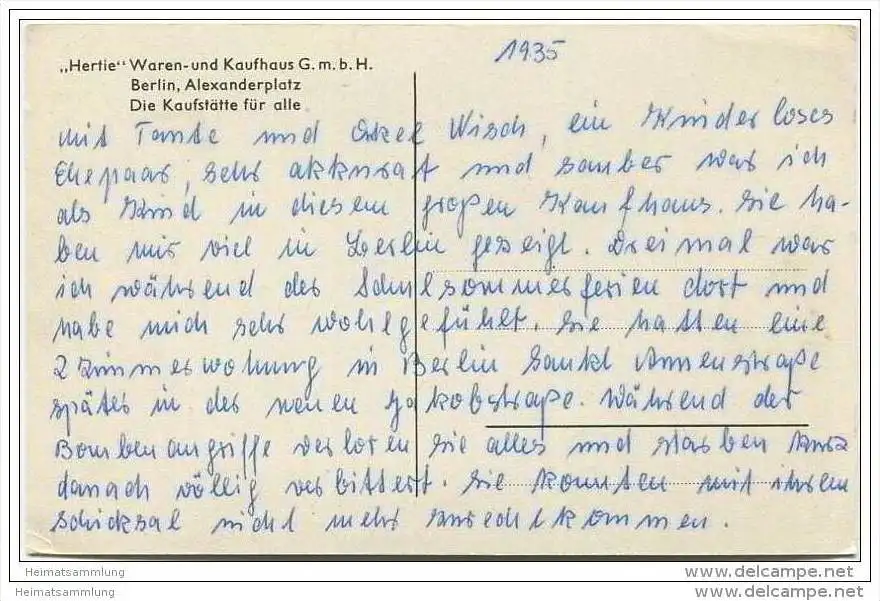 1935
„Hertie“ Waren-und Kaufhaus G.m.b.H.
Berlin, Alexanderplatz
Die Kaufstätte für alle
mit Tante und Onkel Wisch, ein Kinderloses
Ehepaar, sehr akkurat und sauber war ich
als Kind in diesem großen Kaufhaus. Sie ha-
ben mir viel in Berlin gezeigt. Dreimal war
ich während der Schulsommerferien dort und
habe mich sehr wohlgefühlt. Sie hatten eine
2 Zimmerwohnung in Berlin Sankt Annenstraße
später in der neuen Jakobstraße. Während der
Bombenangriffe verloren sie alles und starben kurz
danach völlig verbittert. Sie konnten mit ihrem
Schicksal nicht mehr zurechtkommen.
Heimatsammlung
Heimatsammlung
www.delcampe.net
www.delcampe.net